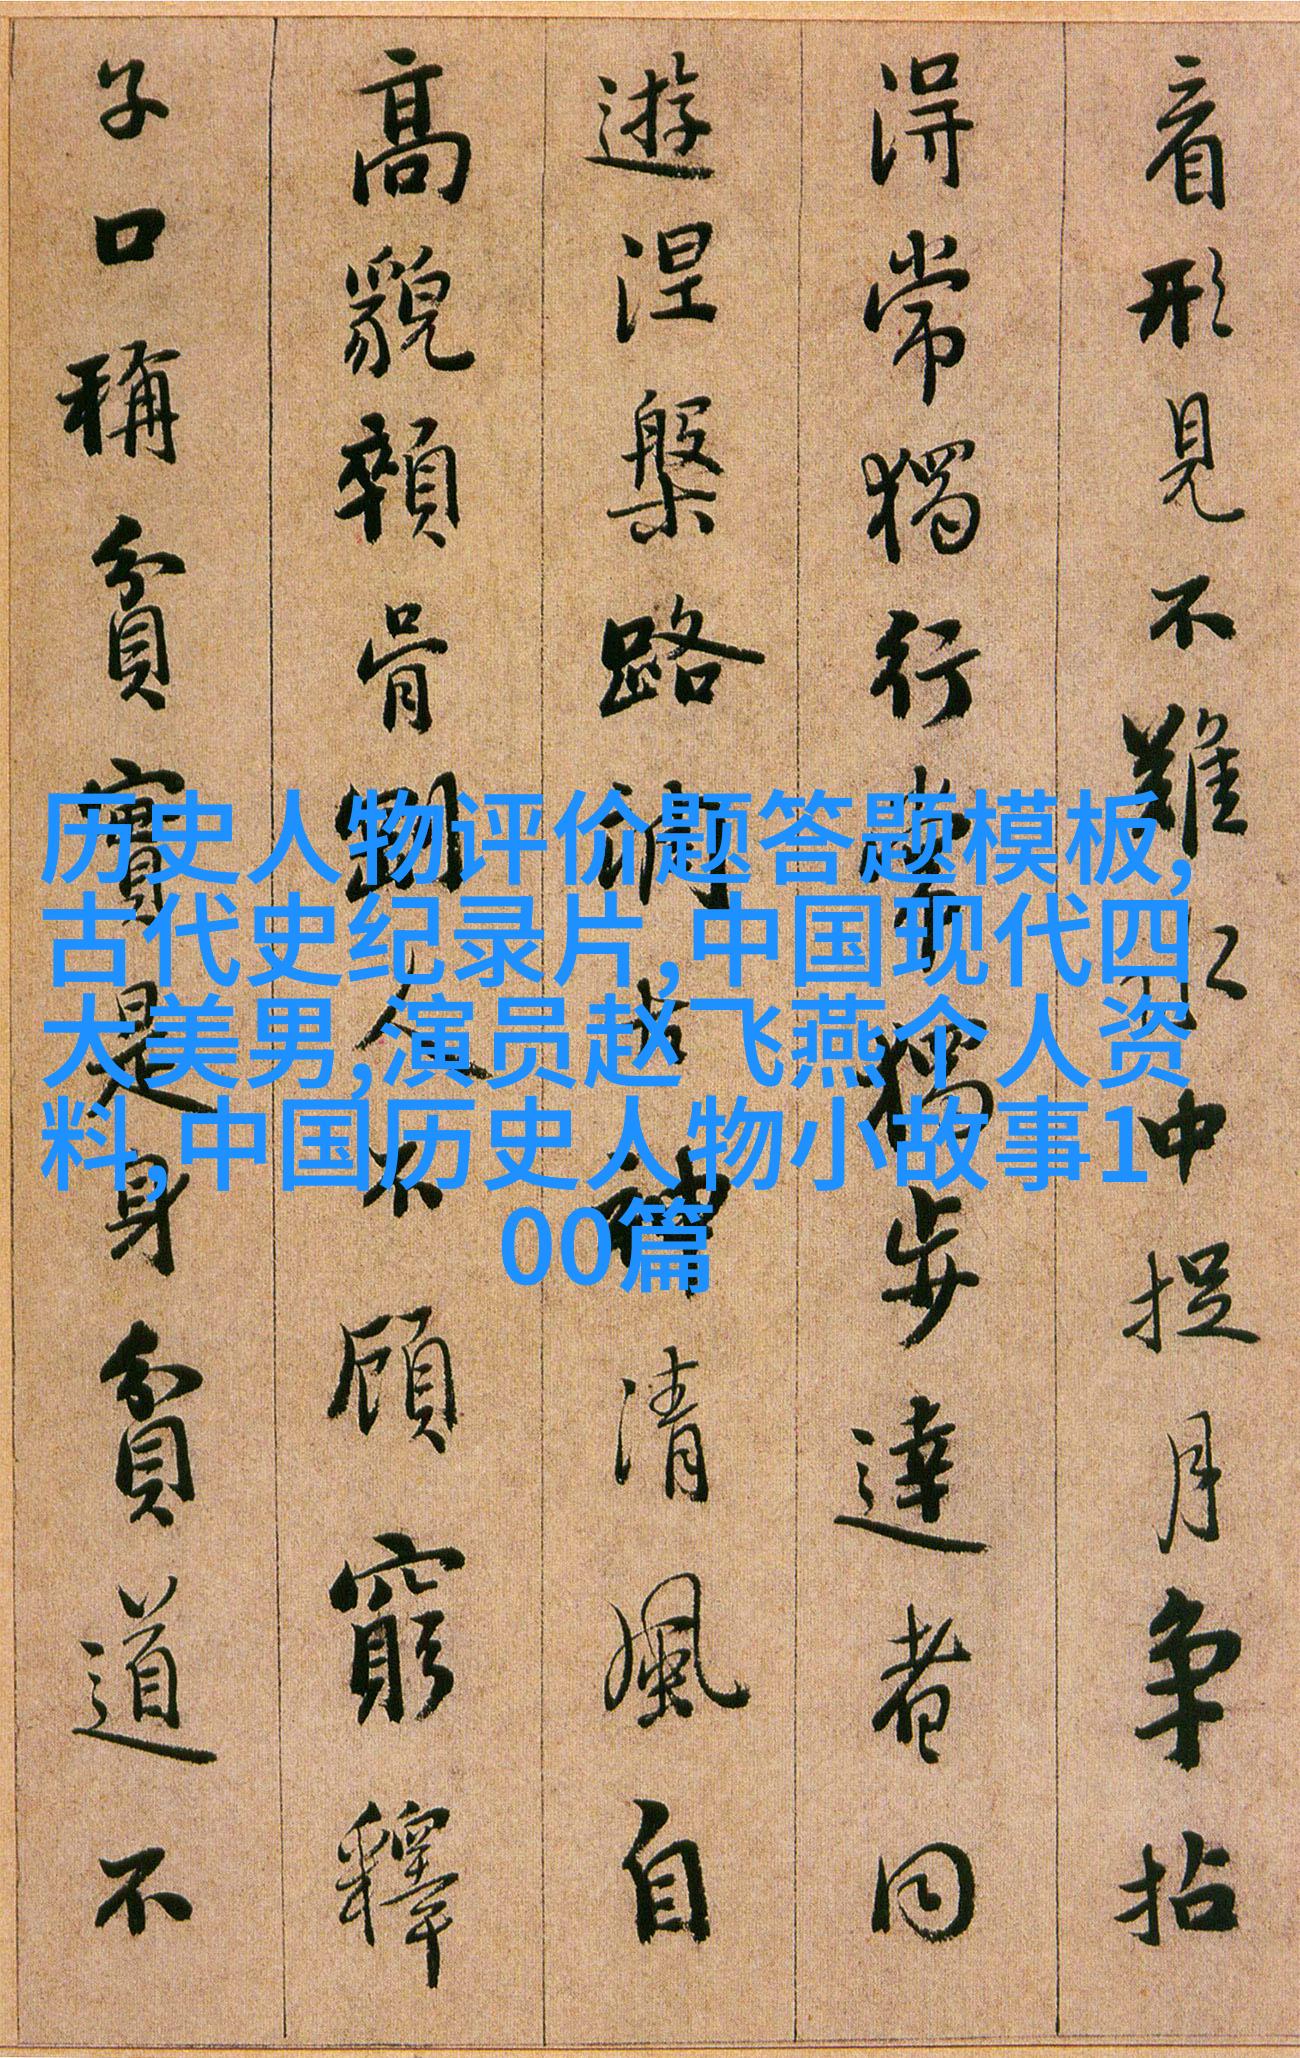 看形見不難水中捉月争拈
得常獨行常獨步達者同
遊涅槃路調古神清風自
高貌顇骨剛人不顧窮釋
子口稱貧實是身貧道不
历史人物评价题答题模板,
古代史纪录片,中国现代四
大美男,演员赵飞燕个人资
料,中国历史人物小故事1
00篇